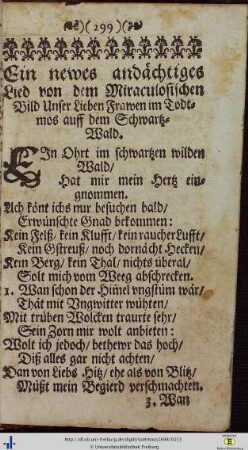 )( 299 )(
Ein newes andächtiges
Lied von dem Miraculosischen
Bild Unser Lieben Frawen im Todt-
mos auff dem Schwartz-
Wald.
EIn Ohrt im schwartzen wilden
Wald/
Hat mir mein Hertz ein-
gnommen.
Ach könt ichs nur besuchen bald/
Erwünschte Gnad bekommen:
Kein Felß/ kein Klufft/ kein raucher Lufft/
Kein Gstreuß/ noch dornächt Hecken/
Kein Berg/ kein Thal/ nichts überal/
Solt mich vom Weeg abschrecken.
1. Wan schon der Himel vngstüm wär/
Thät mit Vngwitter wühten/
Mit trüben Wolcken traurte sehr/
Sein Zorn mir wolt anbieten:
Wolt ich jedoch/ bethewr das hoch/
Diß alles gar nicht achten/
Dan vor Liebs Hitz/ ehe als von Blitz/
Müßt mein Begierd verschmachten.
3. Wan
http://dl.ub.uni-freiburg.de/diglit/todtmoos1698/0313
© Universitätsbibliothek Freiburg